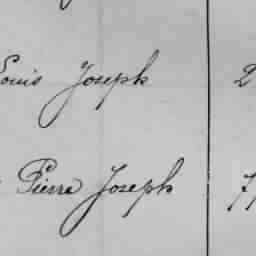 Louis Joseph 2
Pierre Joseph